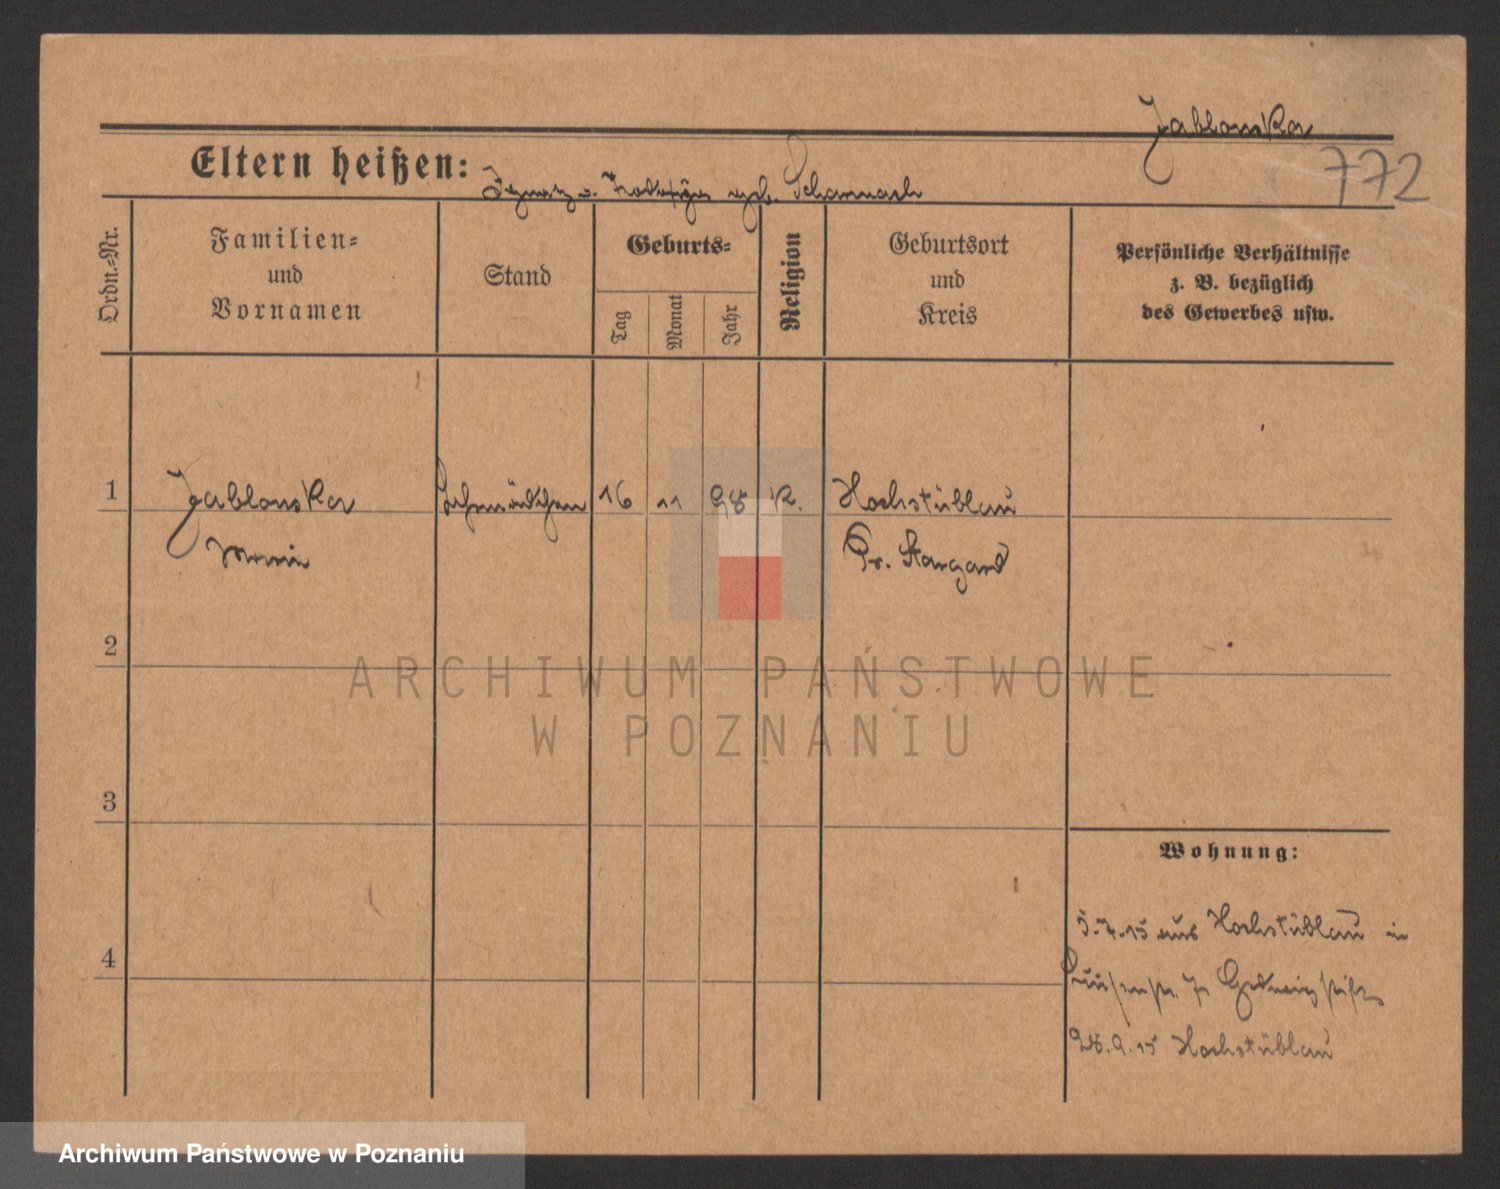 Jablonska
772
Eltern heißen: Ignatz u. geb.
Ordn.-Nr.
Familien=
und
Vornamen
Stand
Geburts=
Tag
Monat
Jahr
Religion
Geburtsort
und
Kreis
Persönliche Verhältnisse
z. B. bezüglich
des Gewerbes usw.
1 Jablonska 16 11 98 K. Hochstüblau
Maria Pr. Stargard
2
3
4
Wohnung:
5.7.15 aus Hochstüblau in
Luisenstr. Hedwigstift
28.9.15 Hochstüblau
ARCHIWUM PAŃSTWOWE
W POZNANIU
Archiwum Państwowe w Poznaniu